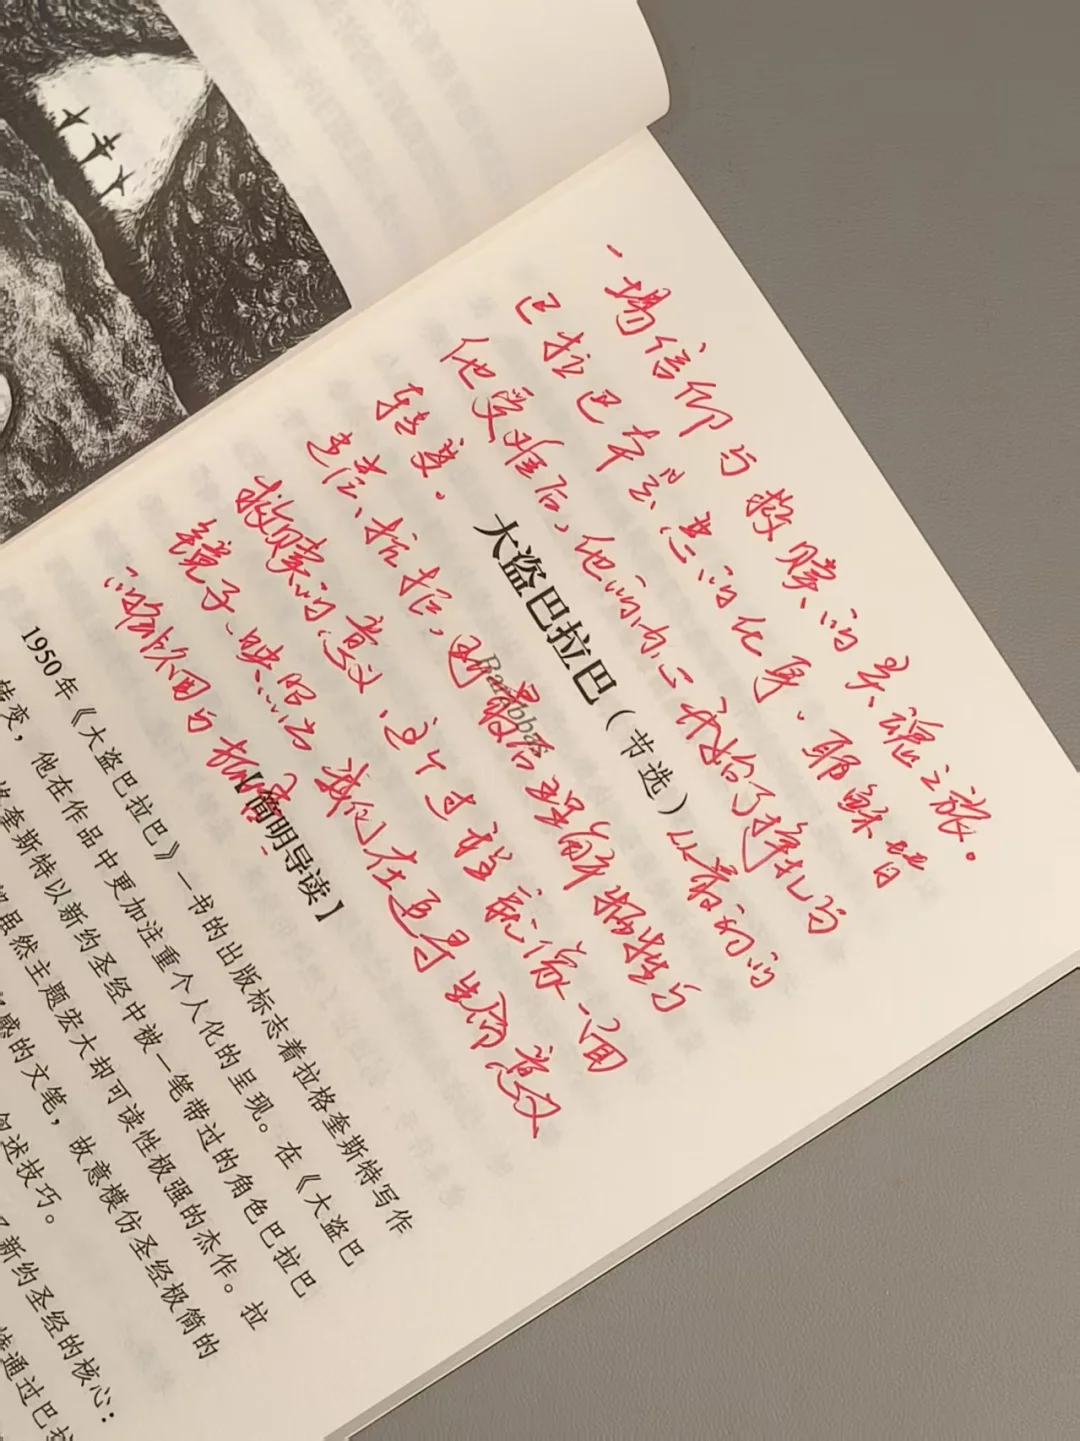 一场信仰与救赎的灵魂之旅。
巴拉巴本是恶的化身。耶稣替
他受难后，他的内心开始了挣扎与
转变。
从最初的
迷茫、抗拒，到最后理解牺牲与
救赎的意义，这个过程就像一面
镜子，映照出我们在追寻生命意义
的路欣
大盗巴拉巴（节选）
Barabbas
【简明导读】
1950年《大盗巴拉巴》一书的出版标志着拉格奎斯特写作
转变，他在作品中更加注重个人化的呈现。在《大盗巴
格奎斯特以新约圣经中被一笔带过的角色巴拉巴
虽然主题宏大却可读性极强的杰作。拉
感的文笔，故意模仿圣经极简的
述技巧。
新约圣经的核心：
通过巴拉